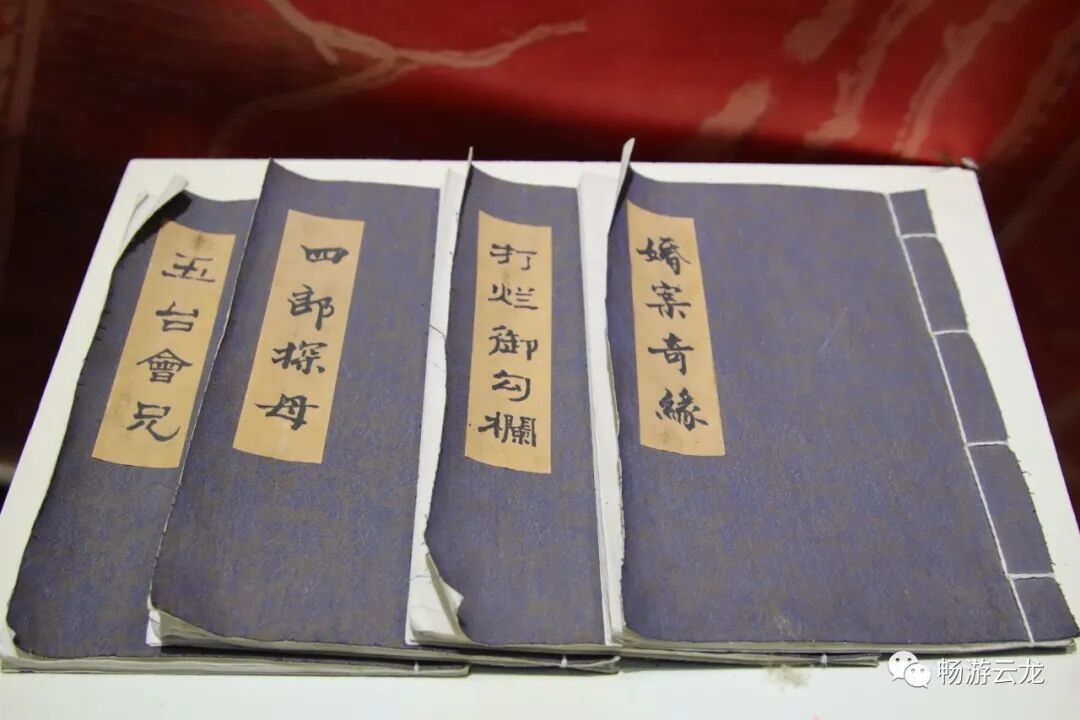 五台會兄
四郎探母
打烂御勾欄
婚案奇緣
畅游云龙